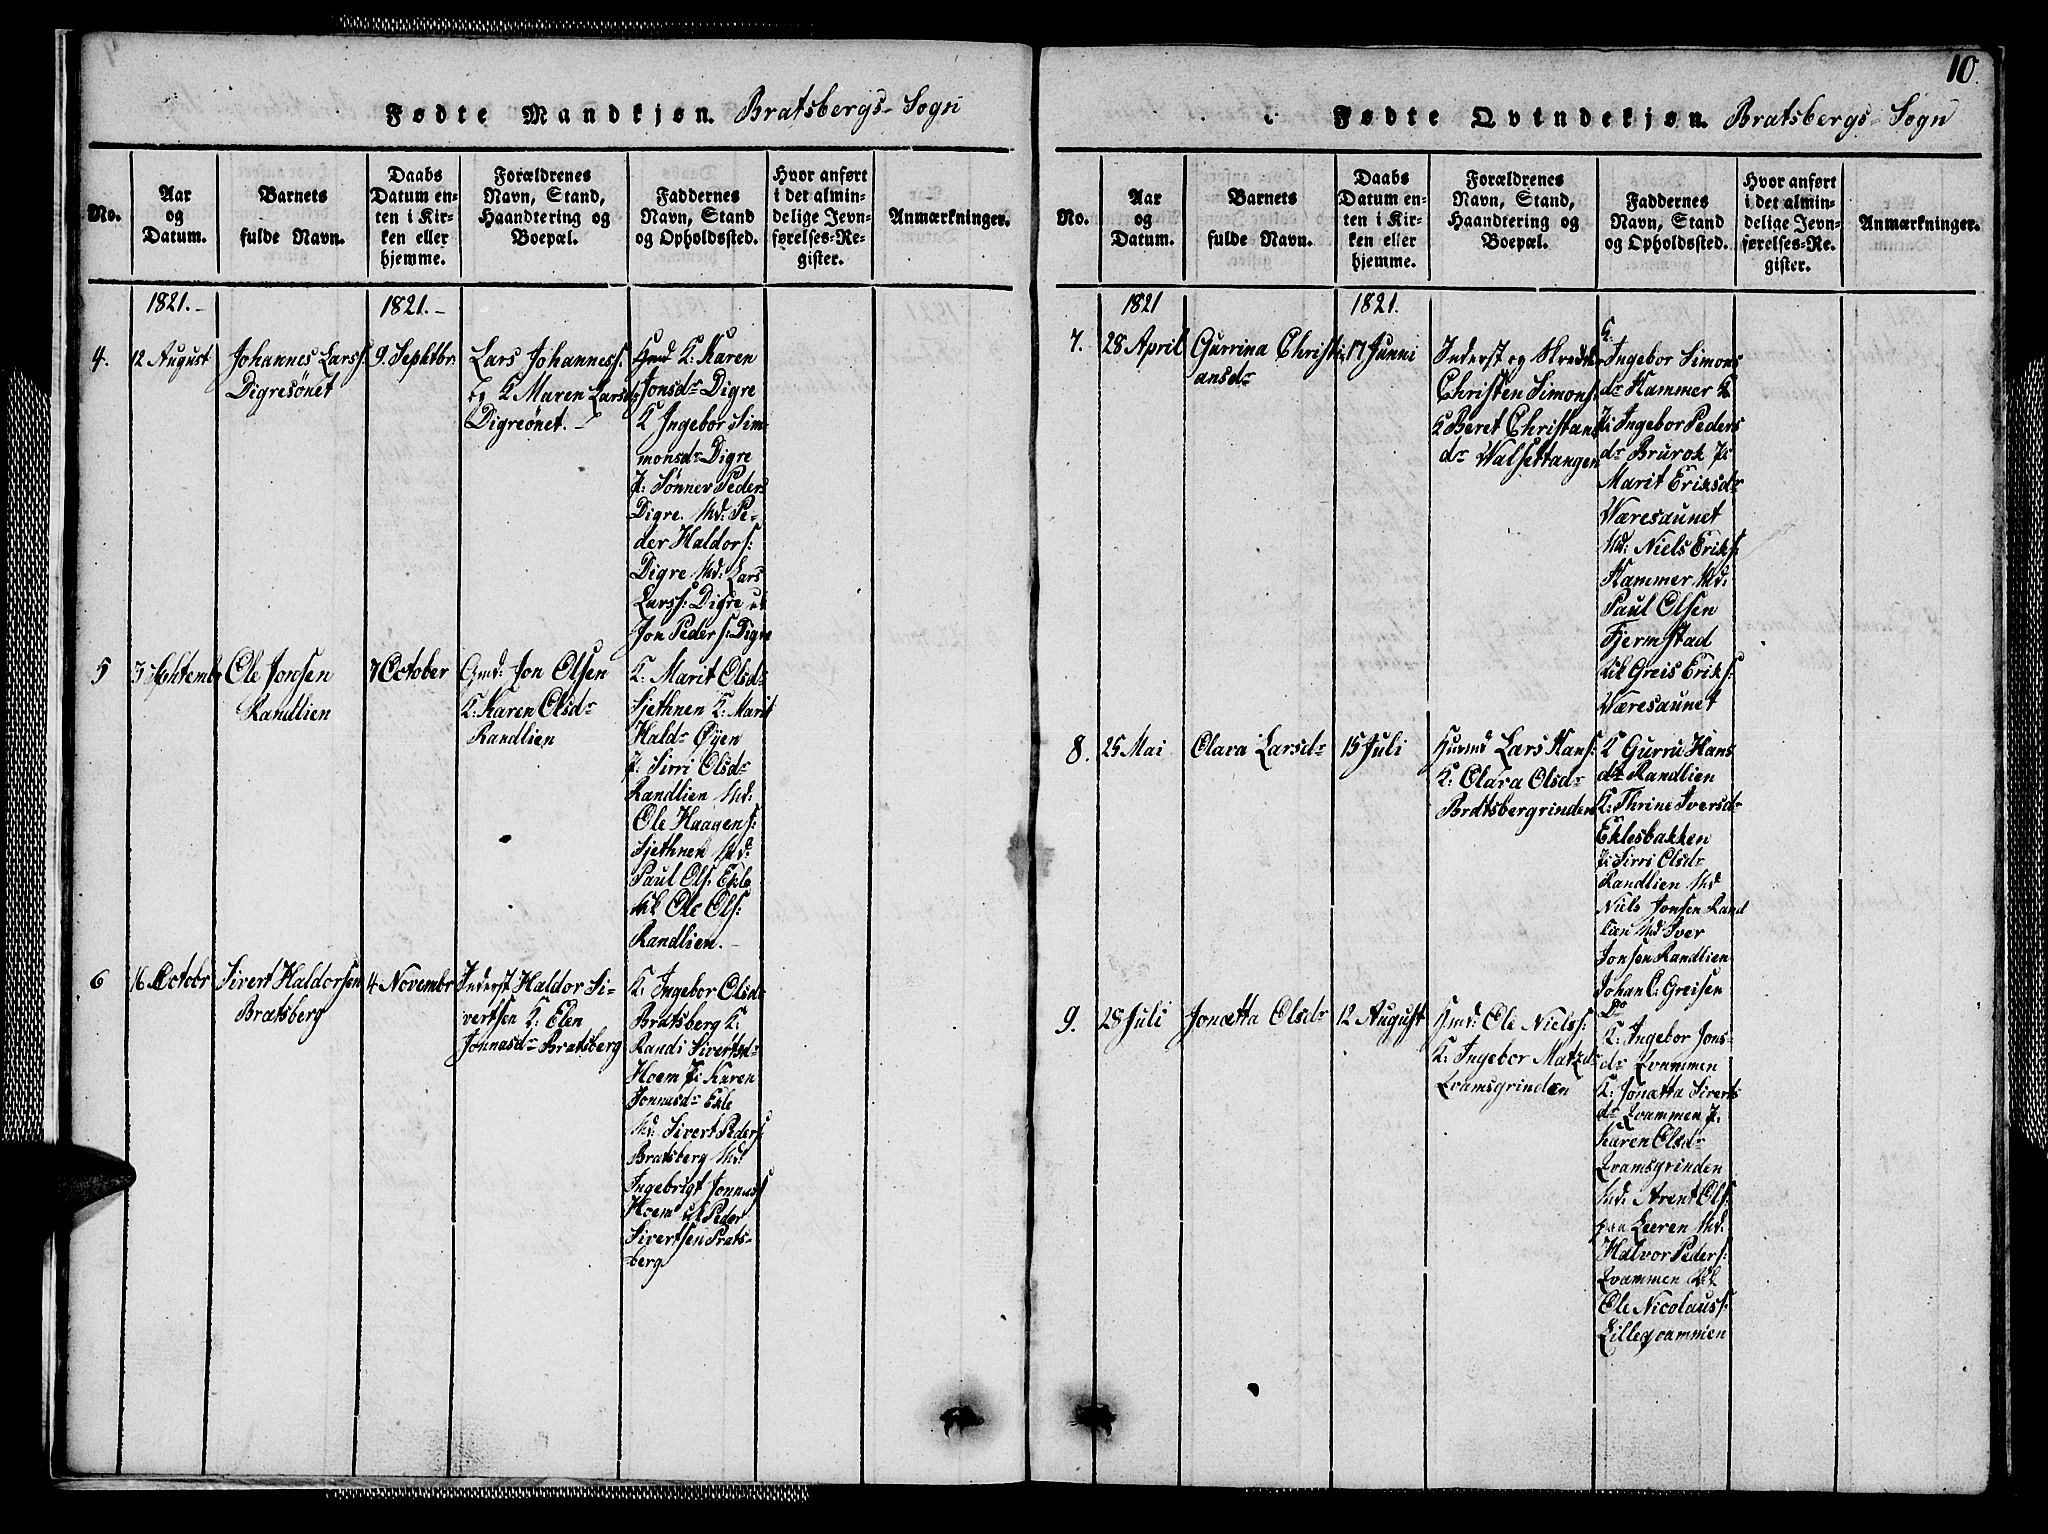 Fødte Mandkjøn. Bratsbergs-Sogn
No.
Aar
og
Datum.
Barnets
fulde Navn.
Daabs
Datum en-
ten i Kir-
ken eller
hjemme.
Forældrenes
Navn, Stand,
Haandtering og
Boepæl.
Faddernes
Navn, Stand
og Opholdssted.
Hvor anført
i det almin-
delige Jevn-
førelses-Re-
gister.
Anmærkninger.
1821.-
1821.-
4.
12 August
Johannes Larss:
Digresönet
9. Sephtbr.
Lars Johanness:
og K Maren Larsd
Digreönet.
K: Karen
Jonsdr Digre
K Ingebor Sim
monsdr Digre
P: Sönnev Peders
Digre. Md: Pe-
der Haldors:
Digre Md: Lars
Larss: Digre
Jon Peders: Digre
5
3 Sephtembr
Ole Jonsen
Randlien
7 October
Gmd: Jon Olsen
K: Karen Olsdr
Randlien
K: Marit Olsdr
Sjethnen K: Marit
Haldr Öyen
P: Sirri Olsdr
Randlien Md:
Ole Haagens:
Sjethnen Md:
Paul Ols: Ekle
Ole Ols:
Randlien.-
6
16 Octobr
Sivert Haldorsen
Bratsberg
4 Novembr
Inderst Haldor Si-
vertsen K: Elen
Jonnasdr Bratsberg
K: Ingebor Olsdr
Bratsberg K:
Randi Sivertsdr
Hoem P: Karen
Jonnasdr Ekle
Md: Sivert Peders:
Bratsberg Md:
Ingebrigt Jonnass
Hoem Peder
Sivertsen Brats-
berg
10.
Fødte Qvindekjøn. Bratsbergs-Sogn
No.
Aar
og
Datum.
Barnets
fulde Navn.
Daabs
Datum en-
ten i Kir-
ken eller
hjemme.
Forældrenes
Navn, Stand,
Haandtering og
Boepæl.
Faddernes
Navn, Stand
og Opholdssted.
Hvor anført
i det almin-
delige Jevn-
førelses-Re-
gister.
Anmærkninger.
1821
1821.
7.
28 April
Gurrina Christi
ansdr
17 Junni
Inderst og Skredder
Christen Simons:
K Beret Christans
dr Walsettangen
K.
Ingebor Simons
dr Hammer
P: Ingebor Peders
dr Brurok P:
Marit Eriksdr
Wæresaunet
Md: Niels Eriks:
Hammer Md:
Paul Olsen
Fjermstad
Greis Eriks:
Wæresaunet
8.
25 Mai
Clara Larsdr
15 Juli
Huusmd Lars Hans:
K: Clara Olsdr
Bratsbergrinden
K Gurru Hans
dr Randlien
K: Thrine Iversdr
Eklesbakken
P: Sirri Olsdr
Randlien Md
Niels Jonsen Rand
lien Md Iver
Jonsen Randlien
Johan C. Greisen
Do
9.
28 Juli
Jonætta Olsdr
12 August
Hmd: Ole Niels:
K: Ingebor Matzdr
Qvamsgrinden
K: Ingebor Jons-
dr Qvammen
K: Jonætta Siverts
dr Qvammen P:
Karen Olsdr
Qvamsgrinden
Md: Arent Ols:
paa Leeren Md:
Halvor Peders:
Qvammen
Ole Nicolauss:
Lilleqvammen